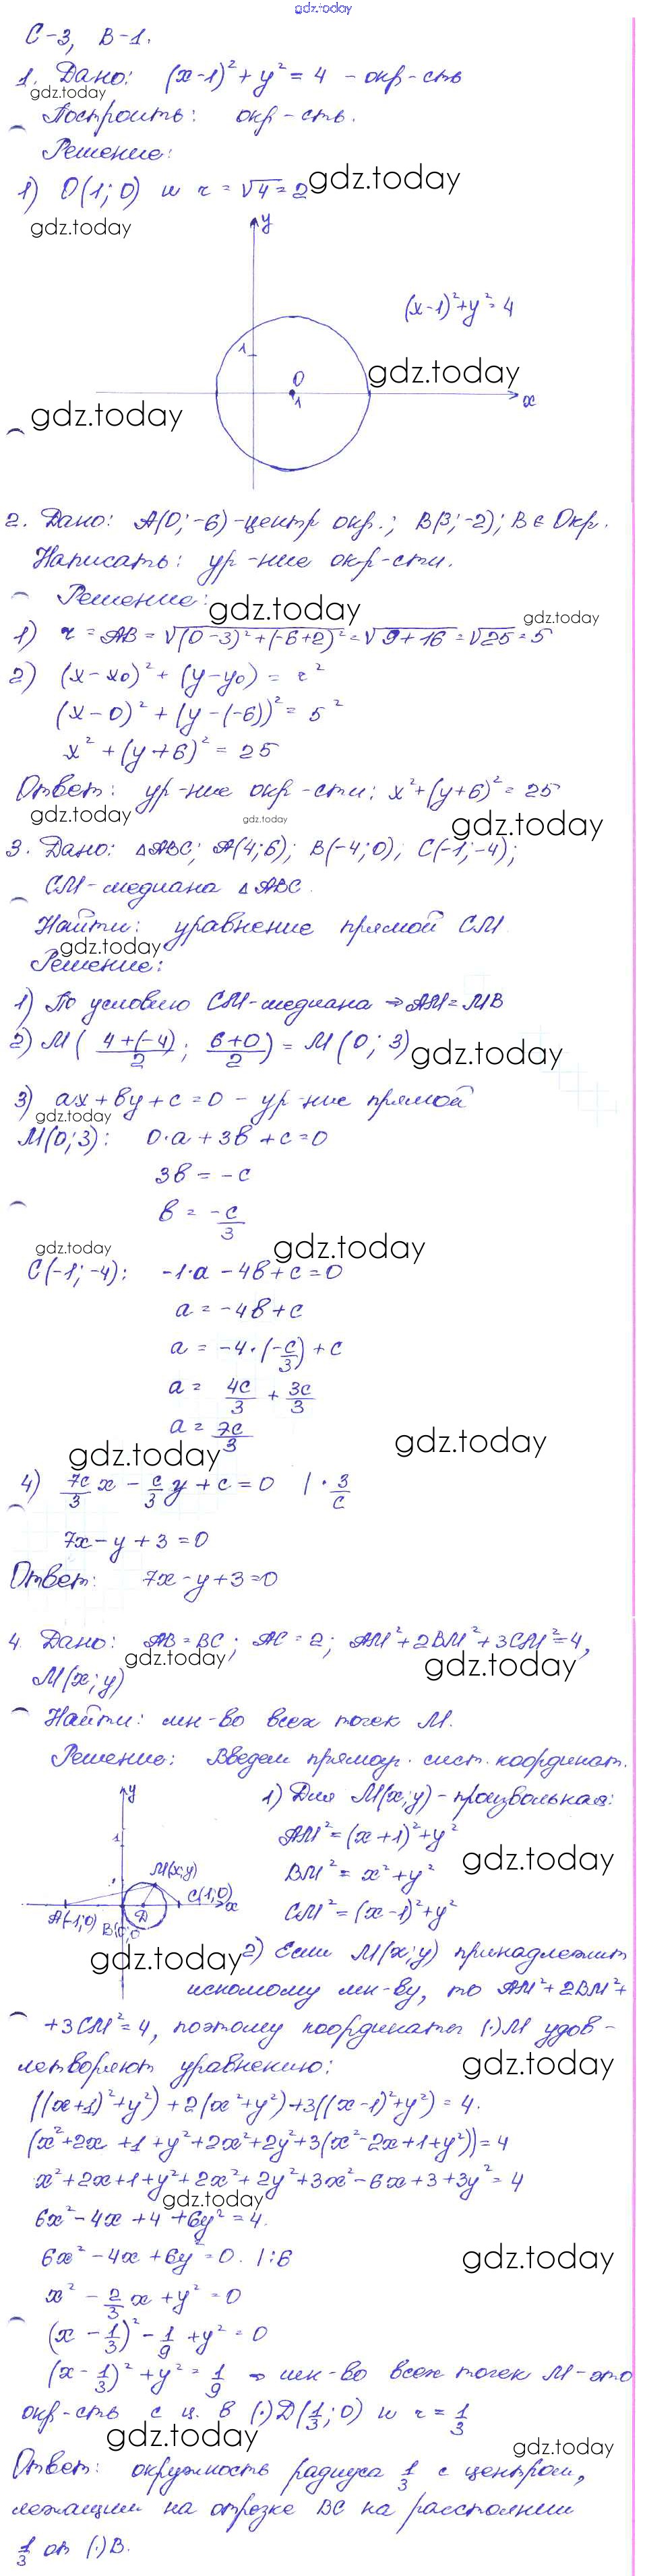 gdz.today
С-3, В-1.
1. Дано: (x-1)²+y²=4 - окр-сть
gdz.today
Построить: окр-сть.
Решение:
1) O(1;0) и r=√4=2
gdz.today
gdz.today
y
(x-1)²+y²=4
1
O
gdz.today
1
x
gdz.today
2. Дано: A(0;-6)-центр окр.; B(3;-2); B∈Окр.
Написать: ур-ние окр-сти.
Решение:
gdz.today
gdz.today
1) r=AB=√(0-3)²+(-6+2)²=√9+16=√25=5
2) (x-x₀)²+(y-y₀)=r²
(x-0)²+(y-(-6))²=5²
x²+(y+6)²=25
Ответ: ур-ние окр-сти: x²+(y+6)²=25
gdz.today
gdz.today
gdz.today
3. Дано: △ABC; A(4;6); B(-4;0); C(-1;-4);
CM-медиана △ABC.
Найти: уравнение прямой CM
gdz.today
Решение:
1) По условию CM-медиана ⇒ AM=MB
2) M(4+(-4)/2; 6+0/2)=M(0;3)
gdz.today
3) ax+by+c=0 - ур-ние прямой
gdz.today
M(0;3): 0·a+3b+c=0
3b=-c
b=-c/3
gdz.today
gdz.today
C(-1;-4): -1·a-4b+c=0
a=-4b+c
a=-4·(-c/3)+c
a=4c/3+3c/3
a=7c/3
gdz.today
gdz.today
4) 7c/3 x - c/3 y+c=0 |·3/c
7x-y+3=0
Ответ: 7x-y+3=0
4. Дано: AB=BC; AC=2; AM²+2BM²+3CM²=4,
gdz.today
gdz.today
M(x;y)
Найти: мн-во всех точек M.
Решение: Введем прямоуг. сист. координат.
y
1) Для M(x;y)-произвольная:
1
AM²=(x+1)²+y²
gdz.today
M(x;y)
BM²=x²+y²
C(1;0)
x
A(-1;0) B(0;0) D
CM²=(x-1)²+y²
gdz.today
2) Если M(x;y) принадлежит
искомому мн-ву, то AM²+2BM²+
+3CM²=4, поэтому координаты (·)M удов-
летворяют уравнению:
gdz.today
((x+1)²+y²)+2(x²+y²)+3((x-1)²+y²)=4.
(x²+2x+1+y²+2x²+2y²+3(x²-2x+1+y²))=4
x²+2x+1+y²+2x²+2y²+3x²-6x+3+3y²=4
gdz.today
6x²-4x+4+6y²=4.
6x²-4x+6y²=0. |:6
gdz.today
x²-2/3x+y²=0
(x-1/3)²-1/9+y²=0
(x-1/3)²+y²=1/9 ⇒ мн-во всех точек M-это
окр-сть с ц. в (·)D(1/3;0) и r=1/3
gdz.today
gdz.today
Ответ: окружность радиуса 1/3 с центром,
лежащим на отрезке BC на расстоянии
1/3 от (·)B.